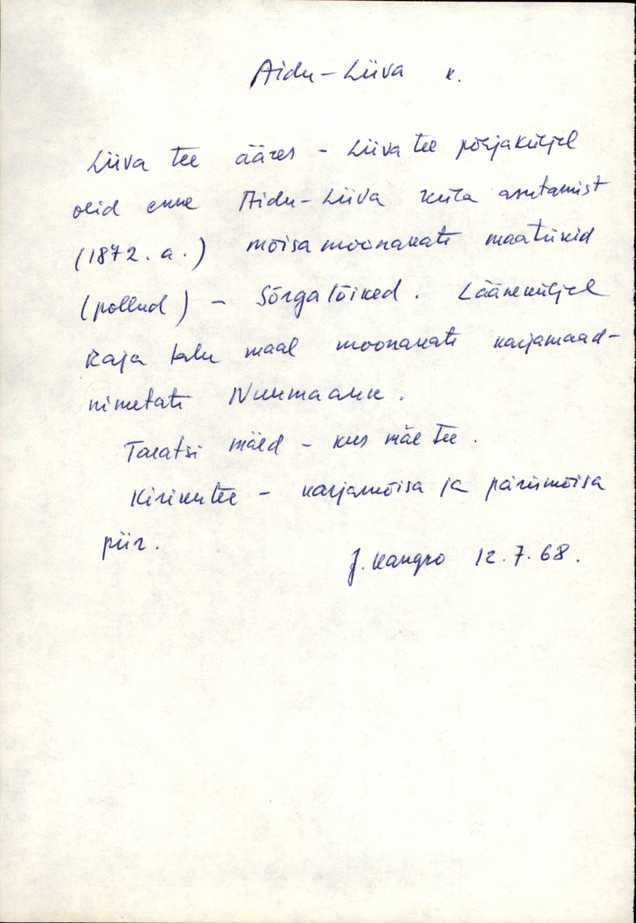 Aidu-Liiva k.
Liiva tee ääres - Liiva tee põhjaküljel
olid enne Aidu-Liiva küla asutamist
(1872. a.) mõisa moonakate maatükid
(põllud) - Sõrgalõiked. Lääneküljel
Raja talu maal moonakate karjamaad-
nimetati
mäed - kus mäe tee.
Kirikutee - karjamõisa ja pärismõisa
piir.
J. Kangro 12.7.68.